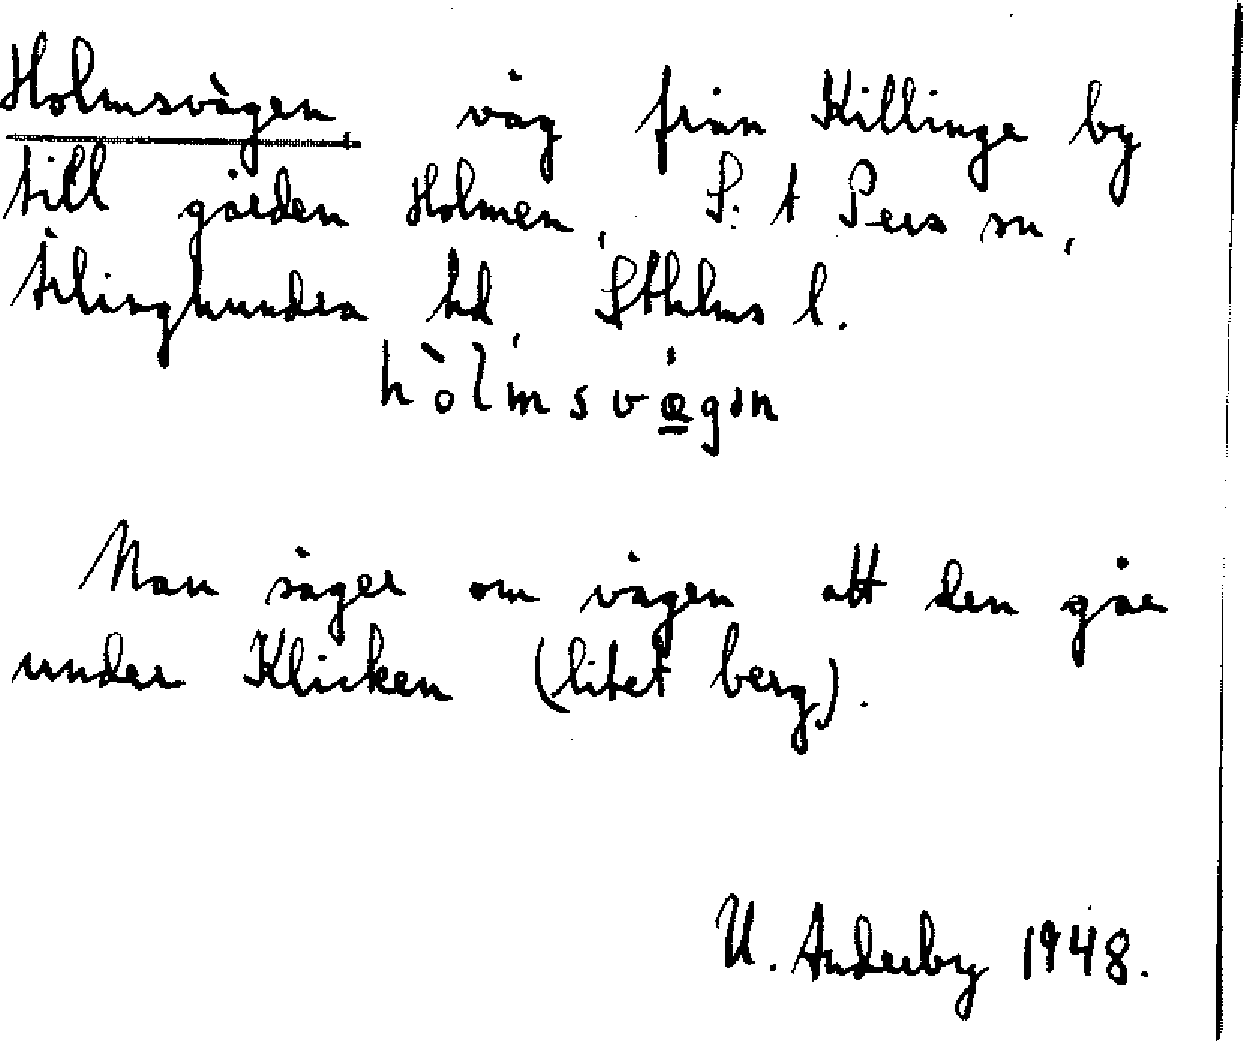 Holmsvägen väg från Killinge by
till gården Holmen, S:t Pers sn,
Ärlinghundra hd, Sthlms l.
hòlmsvęgən
Man säger om vägen att den går
under Klicken (litet berg).
U. Anderby 1948.